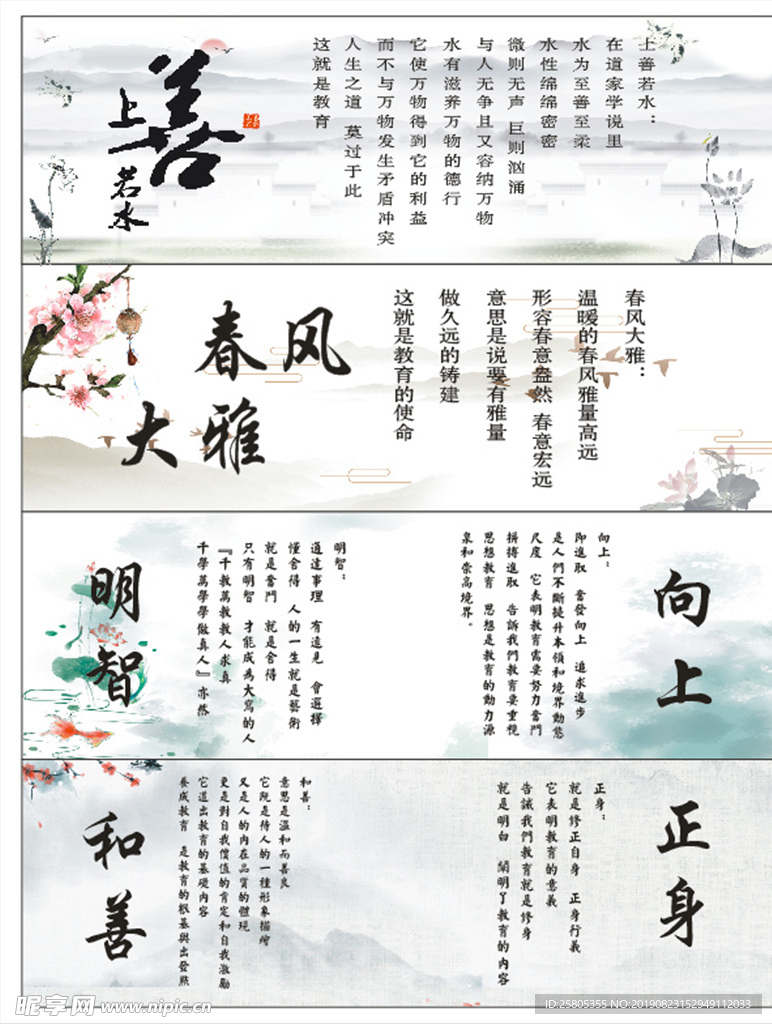 上善
若水
上善若水：
在道家学说里
水为至善至柔
水性绵绵密密
微则无声 巨则汹涌
与人无争且又容纳万物
水有滋养万物的德行
它使万物得到它的利益
而不与万物发生矛盾冲突
人生之道 莫过于此
这就是教育
春风
大雅
春风大雅：
温暖的春风雅量高远
形容春意盎然 春意宏远
意思是说要有雅量
做久远的铸建
这就是教育的使命
明智
明智：
通達事理 有遠見 會選擇
懂舍得 人的一生就是藝術
就是奮鬥 就是舍得
只有明智 才能成為大寫的人
『千教萬教教人求真
千學萬學學做真人』亦然
向上
向上：
即進取 奮發向上 追求進步
是人們不斷提升本領和境界動態
尺度 它表明教育需要努力奮鬥
拼搏進取 告訴我們教育要重視
思想教育 思想是教育的動力源
泉和崇高境界。
和善
和善：
意思是溫和而善良
它既是待人的一種形象描繪
又是人的內在品質的體現
更是對自我價值的肯定和自我激勵
它道出教育的基礎內容
養成教育 是教育的根基與出發點
正身
正身：
就是修正自身 正身行義
它表明教育的意義
告誡我們教育就是修身
就是明白 闡明了教育的内容
昵享网 www.nipic.cn
ID:25805355 NO:20190823152949112033